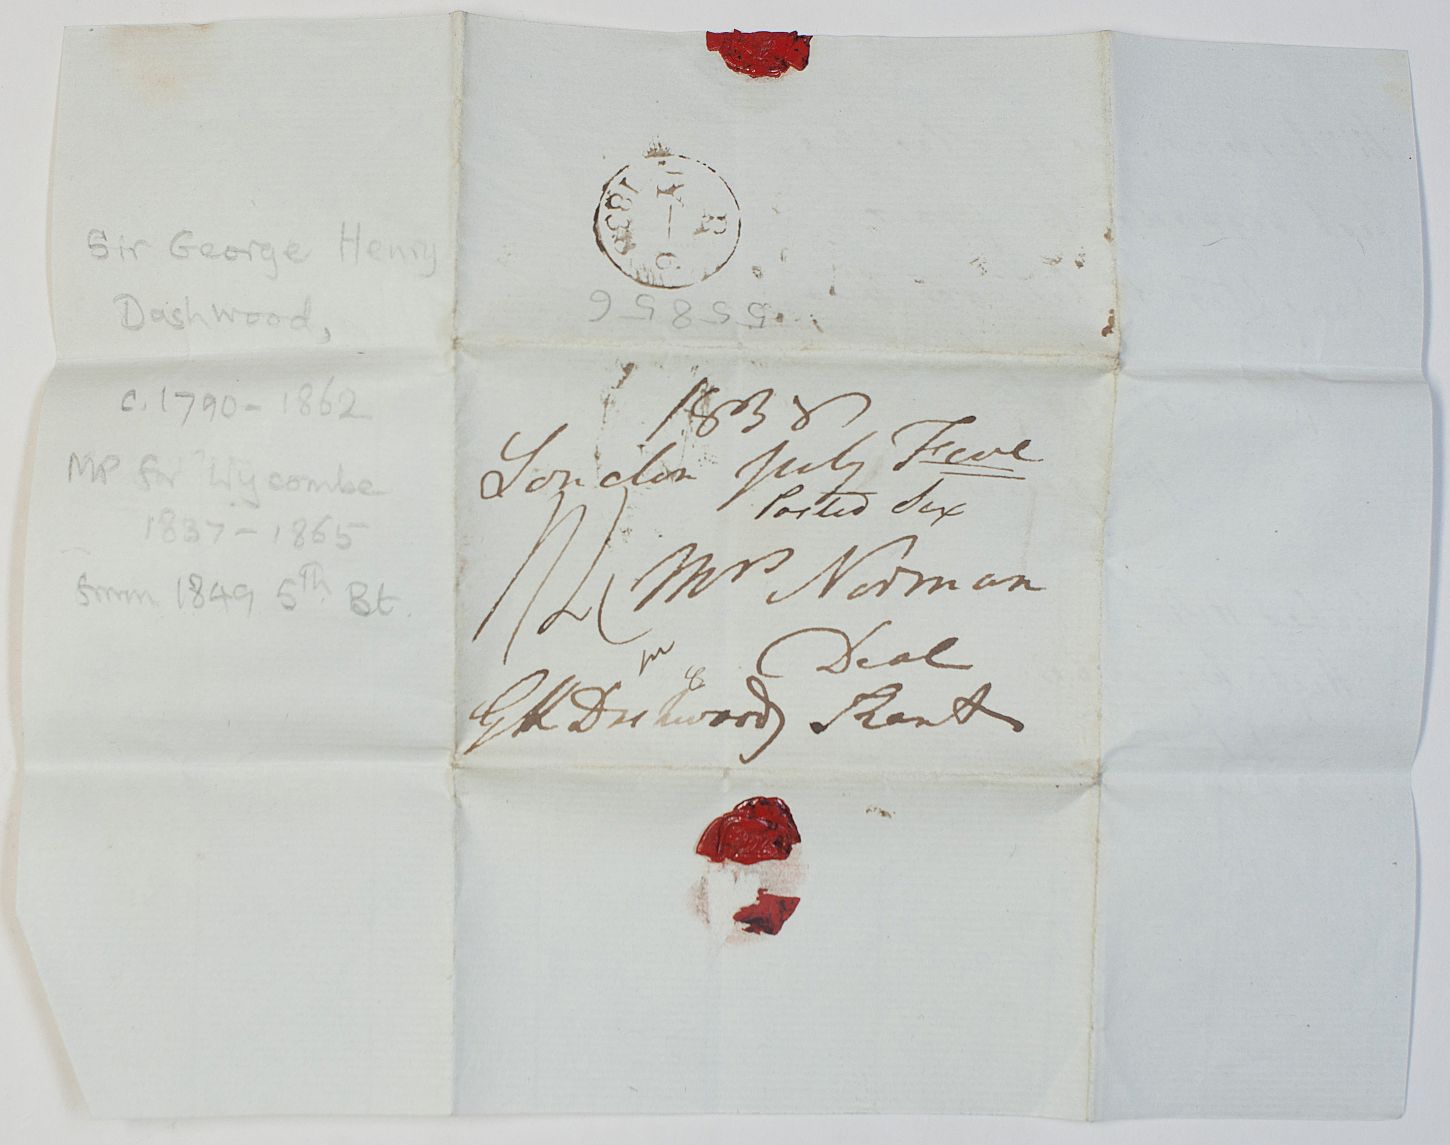 Sir George Henry
Dashwood,
c. 1790 - 1862
MP for Wycombe
1837 - 1865
from 1849 5th Bt.
1838
55856
1838
London July Five
Posted Six
Mrs Norman
Deal
Kent
GH Dashwood